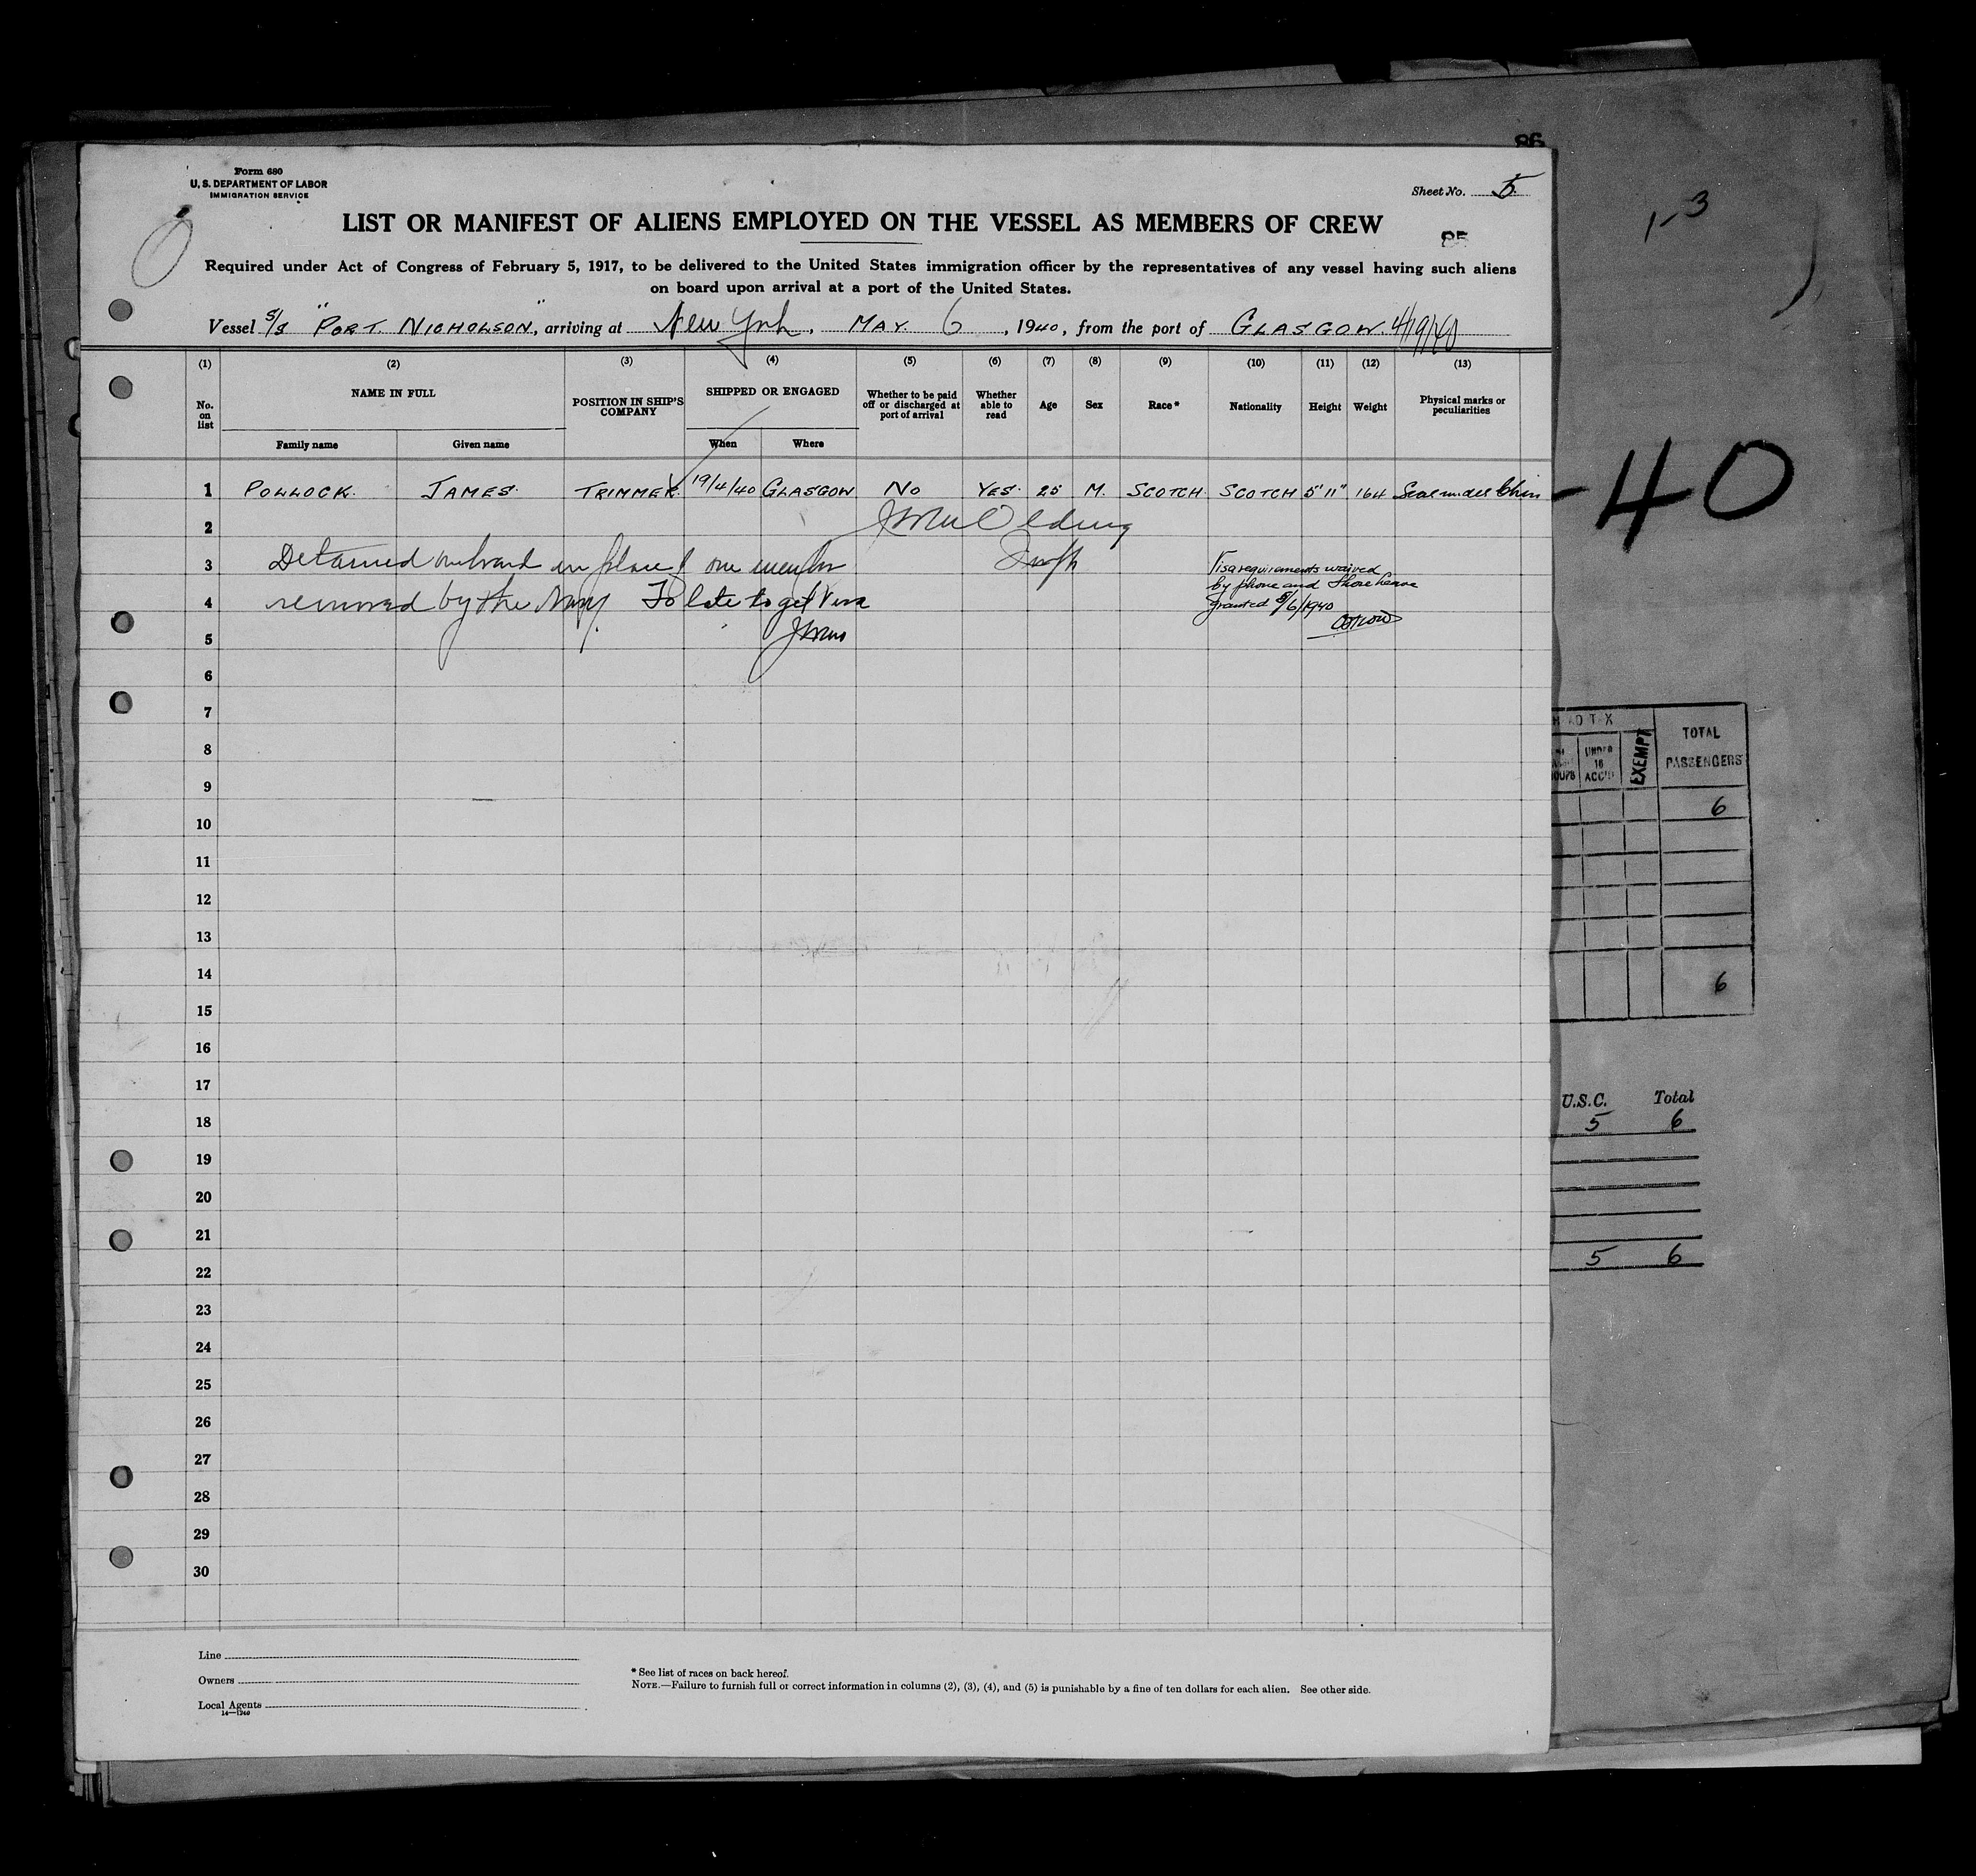 86
Form 680
U. S. DEPARTMENT OF LABOR
IMMIGRATION SERVICE
Sheet No. 5.
LIST OR MANIFEST OF ALIENS EMPLOYED ON THE VESSEL AS MEMBERS OF CREW
85
Required under Act of Congress of February 5, 1917, to be delivered to the United States immigration officer by the representatives of any vessel having such aliens
on board upon arrival at a port of the United States.
Vessel S/S "PORT. NICHOLSON", arriving at New York, MAY. 6, 1940, from the port of GLASGOW. 4/19/40
(1) (2) (3) (4) (5) (6) (7) (8) (9) (10) (11) (12) (13)
No. on list
NAME IN FULL
Family name Given name
POSITION IN SHIP'S COMPANY
SHIPPED OR ENGAGED
When Where
Whether to be paid off or discharged at port of arrival
Whether able to read
Age Sex Race* Nationality Height Weight
Physical marks or peculiarities
1 POLLOCK. JAMES. TRIMMER. 19/4/40 GLASGOW No YES. 25 M. SCOTCH. SCOTCH 5' 11" 164 Scar under Chin
2
3 Detained onboard in place of one member
Visa requirements waived
by phone and Shore leave
4 removed by the Navy. To late to get Visa
granted 5/6/1940
5
6
7
8
9
10
11
12
13
14
15
16
17
18
19
20
21
22
23
24
25
26
27
28
29
30
Line
Owners
Local Agents
14—1240
* See list of races on back hereof.
NOTE.—Failure to furnish full or correct information in columns (2), (3), (4), and (5) is punishable by a fine of ten dollars for each alien. See other side.
1-3
-40
UNDER 16 ACC'D
EXEMPT
TOTAL PASSENGERS
6
6
U.S.C. Total
5 6
5 6